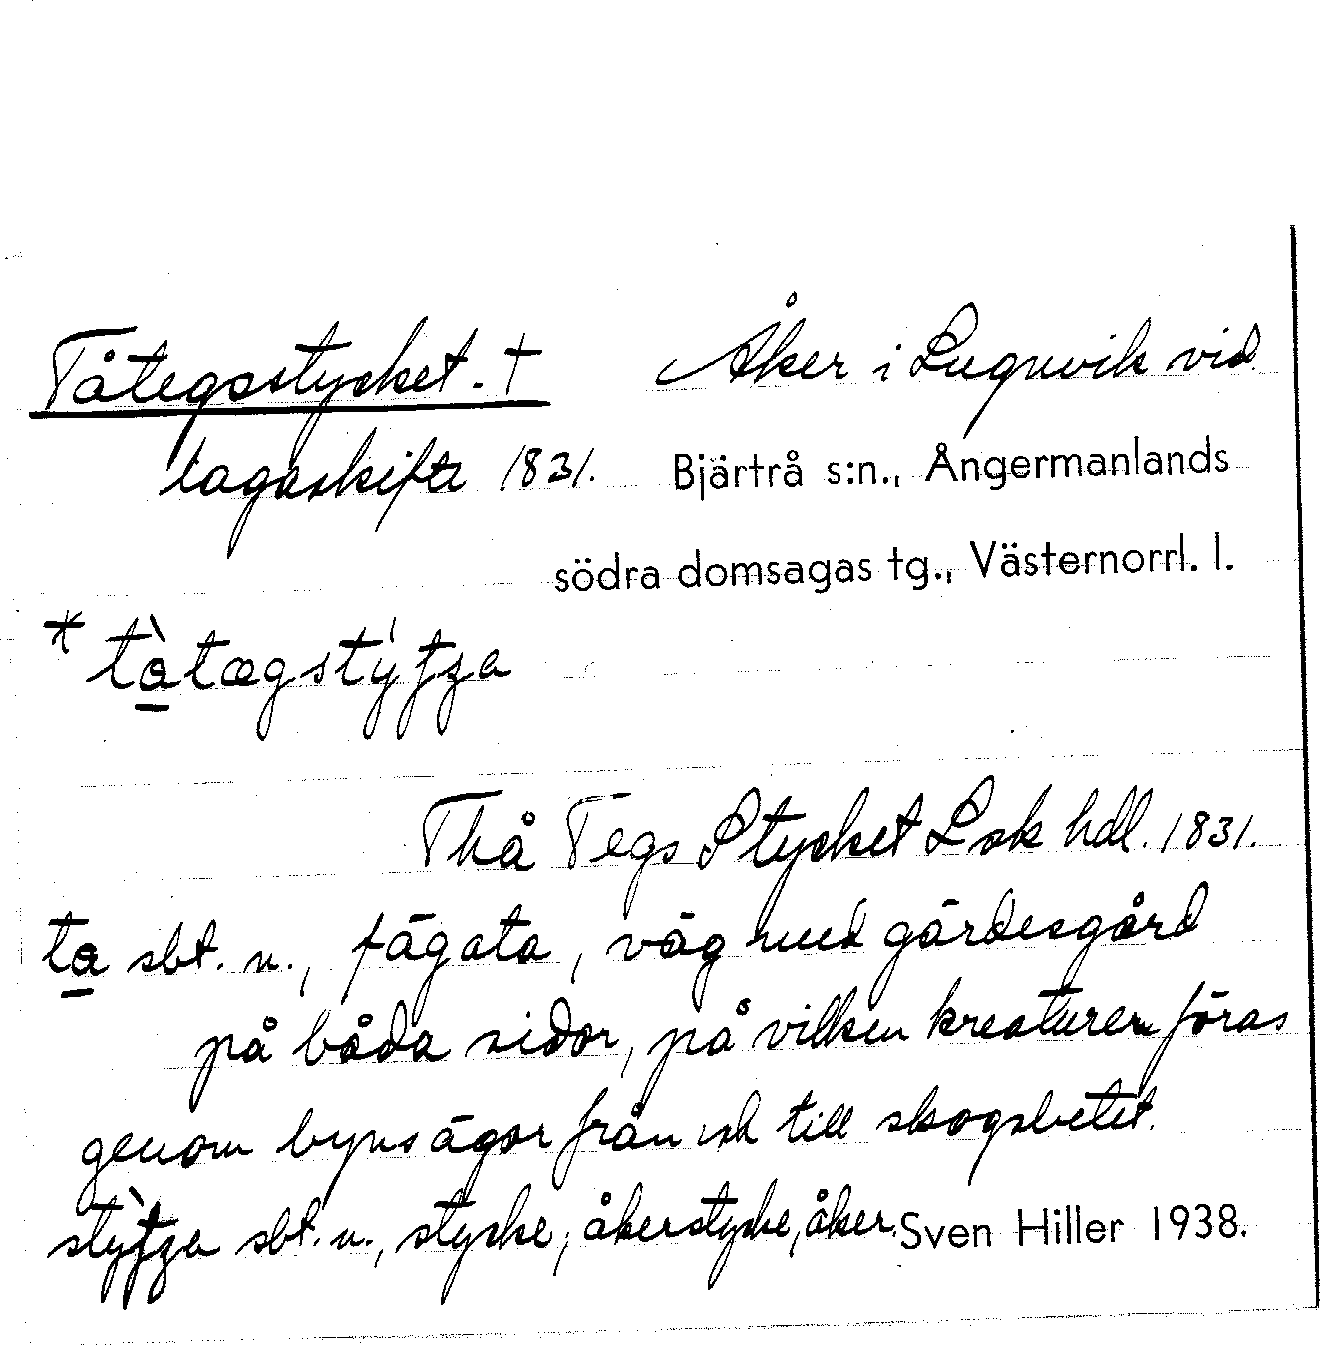 Tåtegsstycket. † Åker i Lugnvik vid
lagaskifte 1831. Bjärtrå s:n., Ångermanlands
södra domsagas tg., Västernorrl. l.
Thå Tegs Stycket Lsk hdl. 1831.
ta sbt. n., fägata, väg med gärdesgård
på båda sidor, på vilken kreaturen föras
genom byns ägor från och till skogsbetet.
sbt. n., stycke, åkerstycke, åker. Sven Hiller 1938.